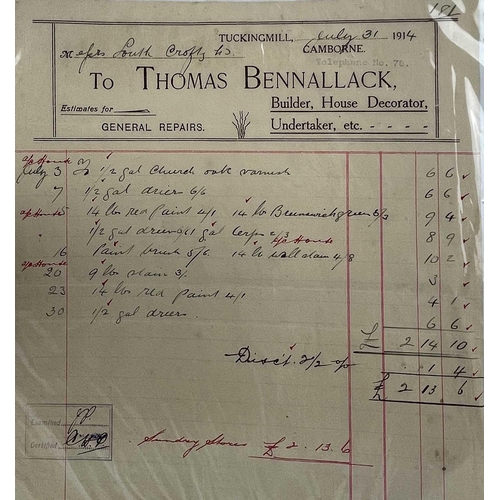 181
TUCKINGMILL, July 31 1914
CAMBORNE.
Messrs South Crofty Ld.
Telephone No. 76.
TO THOMAS BENNALLACK,
Builder, House Decorator,
Estimates for
GENERAL REPAIRS.
Undertaker, etc.
a/c House
July 3 To 1/2 gal Church oak varnish 6 6
7 1/2 gal driers 6/6 6 6
a/c House 14 lbs red Paint 4/1 14 lb Brunswick green 5/3 9 4
1/2 gal driers 1 gal 2/3 8 9
a/c House
16 Paint brush 5/6 14 lb wall stain 4/8 10 2
a/c House
20 9 lbs stain 3/- 3
23 14 lbs red Paint 4/1 4 1
30 1/2 gal driers 6 6
£ 2 14 10
Disc't 2/2 % 1 4
£ 2 13 6
Examined
Certified
Sundry Stores £ 2. 13. 6